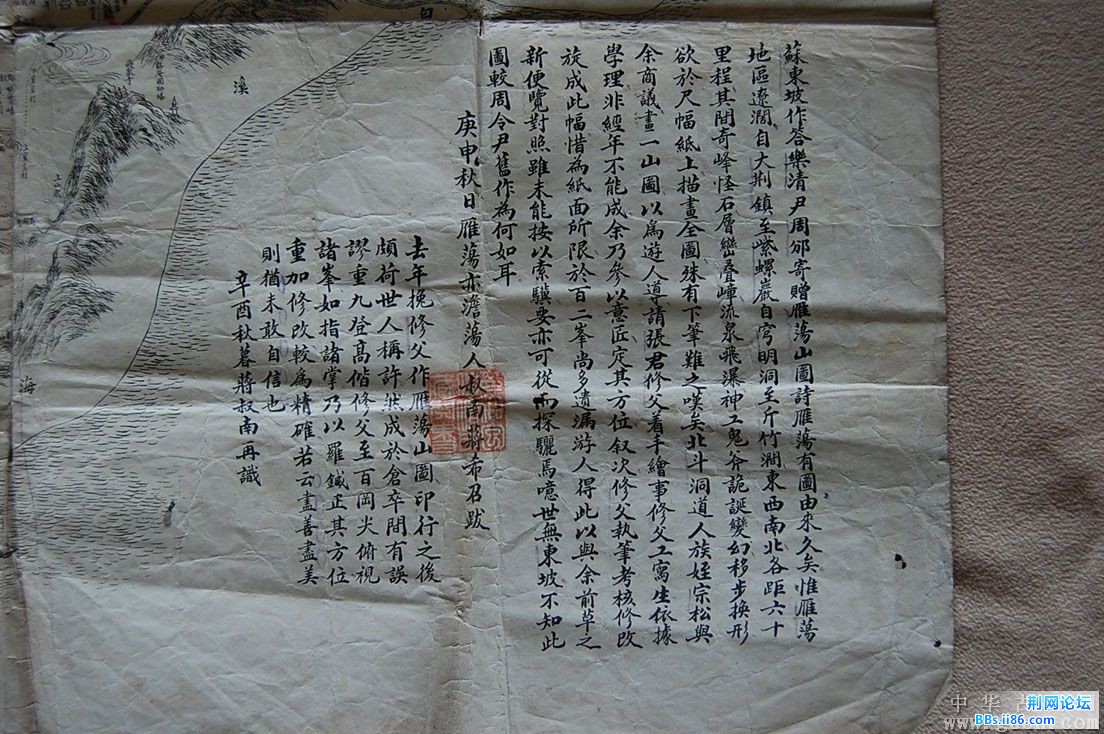 蘇東坡作答樂清尹周邠寄贈雁蕩山圖詩雁蕩有圖由來久矣惟雁蕩
地區遼濶自大荆鎮至紫螺巖自穹明洞至斤竹澗東西南北各距六十
里程其間奇峰怪石層巒叠嶂流泉飛瀑神工鬼斧詭誕變幻移步換形
欲於尺幅紙上描畫全圖殊有下筆難之嘆矣北斗洞道人族姪宗松與
余商議畫一山圖以爲遊人導請張君修父着手繪事修父工寫生依據
學理非經年不能成余乃參以意匠定其方位叙次修父執筆考核修改
旋成此幅惜為紙面所限於百二峯尚多遺漏游人得此以與余前草之
新便覽對照雖未能按以索驥要亦可從而探驪焉噫世無東坡不知此
圖較周令尹舊作為何如耳
庚申秋日雁蕩亦澹蕩人叔南蔣希召跋
去年挽修父作雁蕩山圖印行之後
頗荷世人稱許然成於倉卒間有誤
謬重九登高偕修父至百岡尖俯視
諸峯如指諸掌乃以羅鍼正其方位
重加修改較爲精確若云盡善盡美
則猶未敢自信也
辛酉秋暮蔣叔南再識
溪
海
白
中华古
荆网论坛
BBs.ii86.com